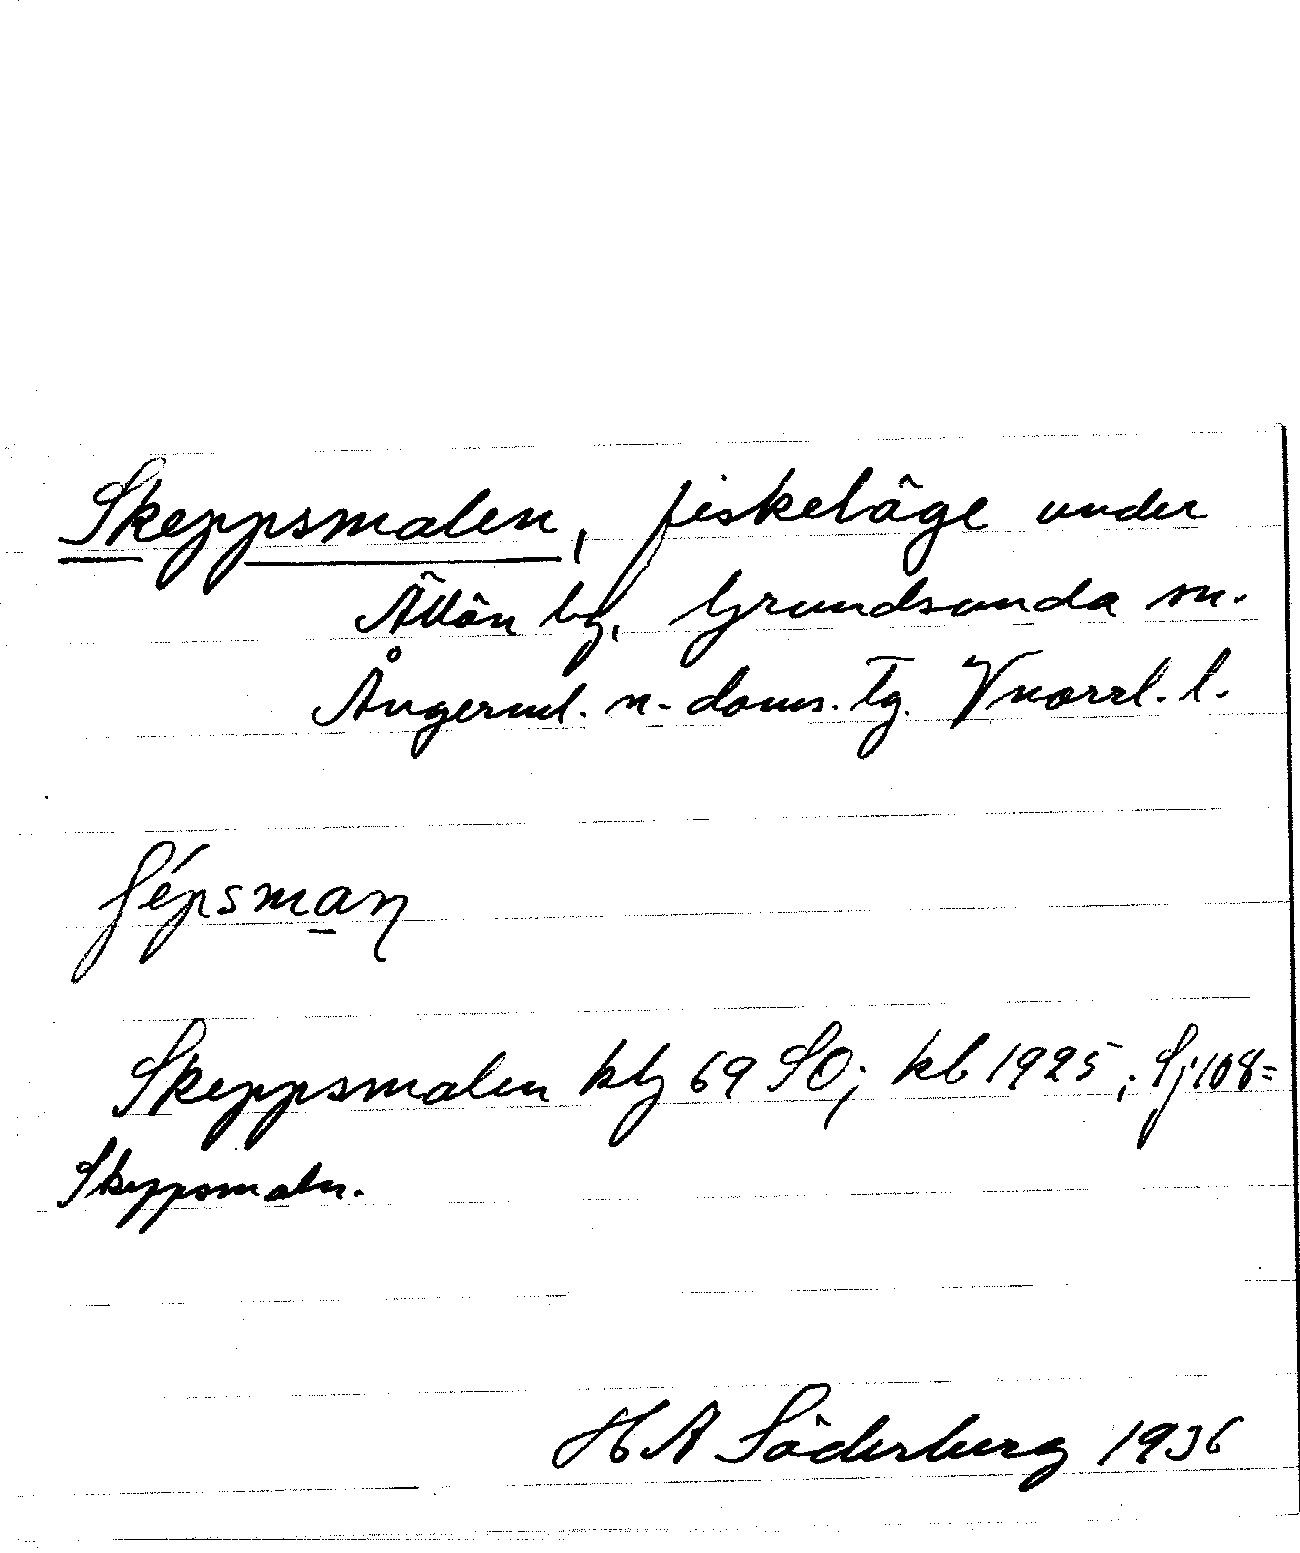 Skeppsmalen, fiskeläge under
by, Grundsunda sn.
Ångerml. n. doms. tg. Vnorrl. l.
Skeppsmalen kbl 69 SO; kb 1925; Sj 108=
Skeppsmalen.
H A Söderberg 1936